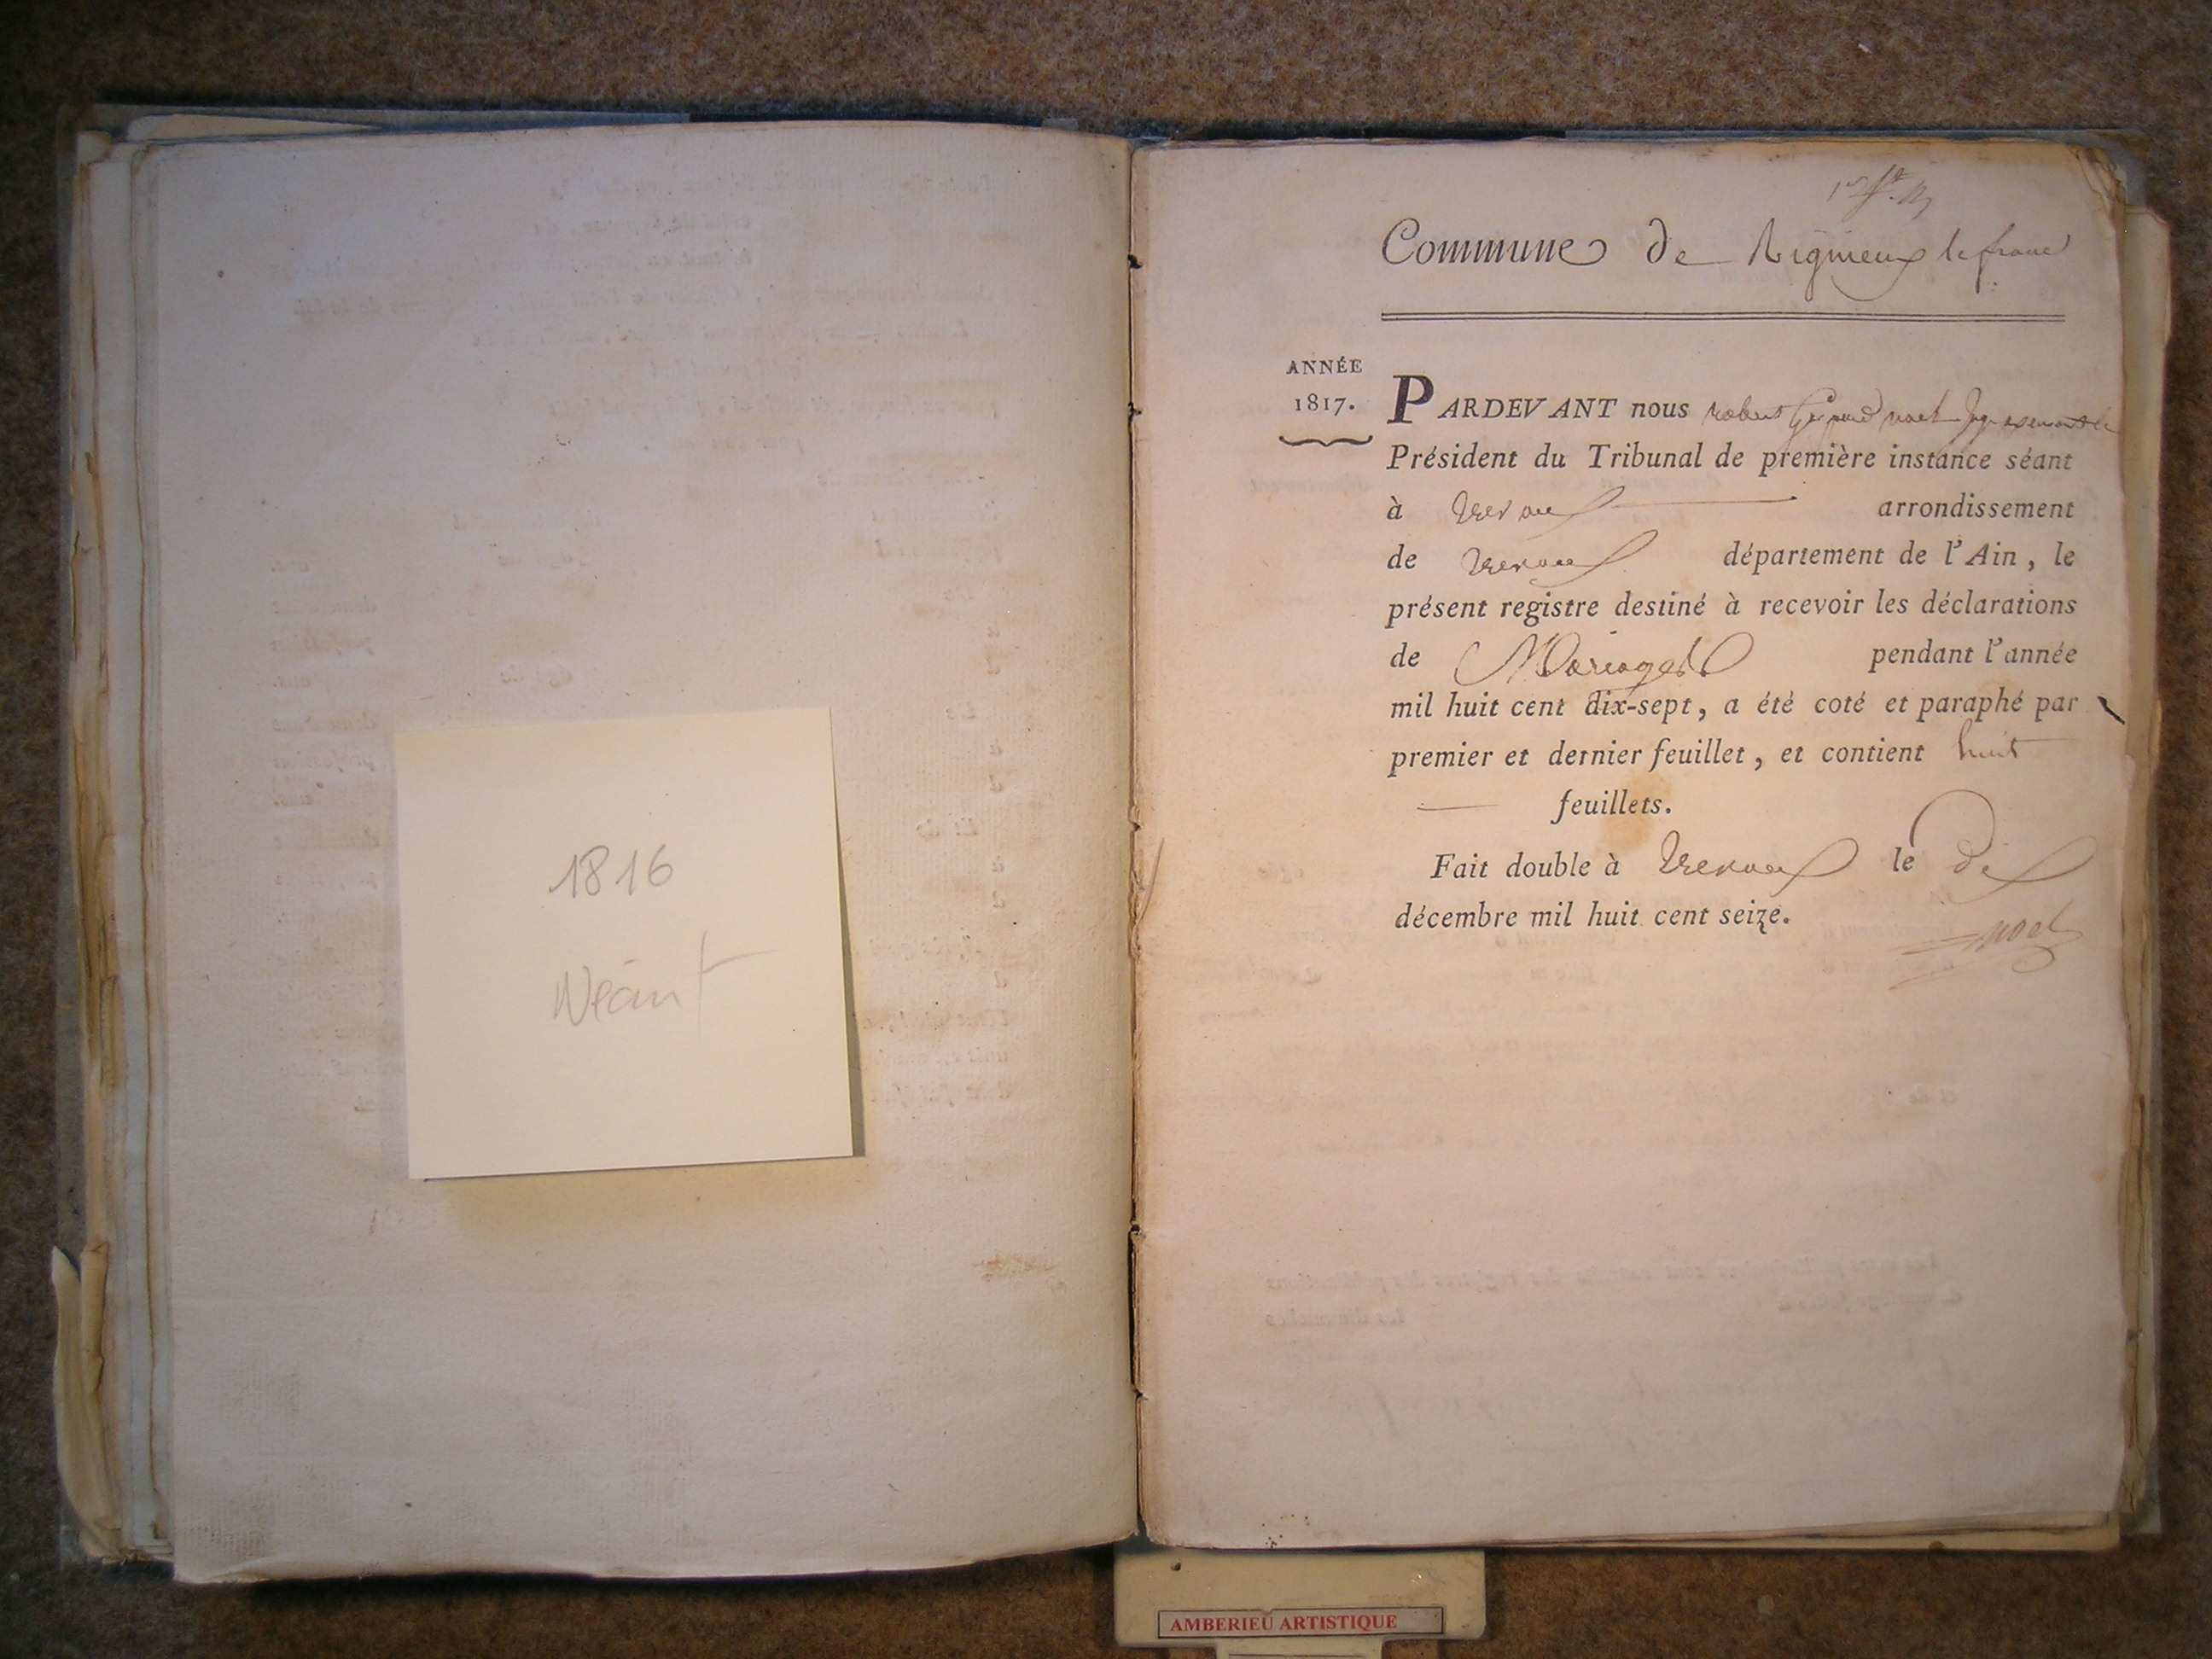 1816
Néant
1er ft.
Commune de Rignieux le franc
ANNÉE
1817.
PARDEVANT nous robert noel juge
Président du Tribunal de première instance séant
à trevoux arrondissement
de trevoux département de l'Ain, le
présent registre destiné à recevoir les déclarations
de Mariages pendant l'année
mil huit cent dix-sept, a été coté et paraphé par
premier et dernier feuillet, et contient huit
feuillets.
Fait double à trevoux le dix
décembre mil huit cent seize.
noel
AMBERIEU ARTISTIQUE